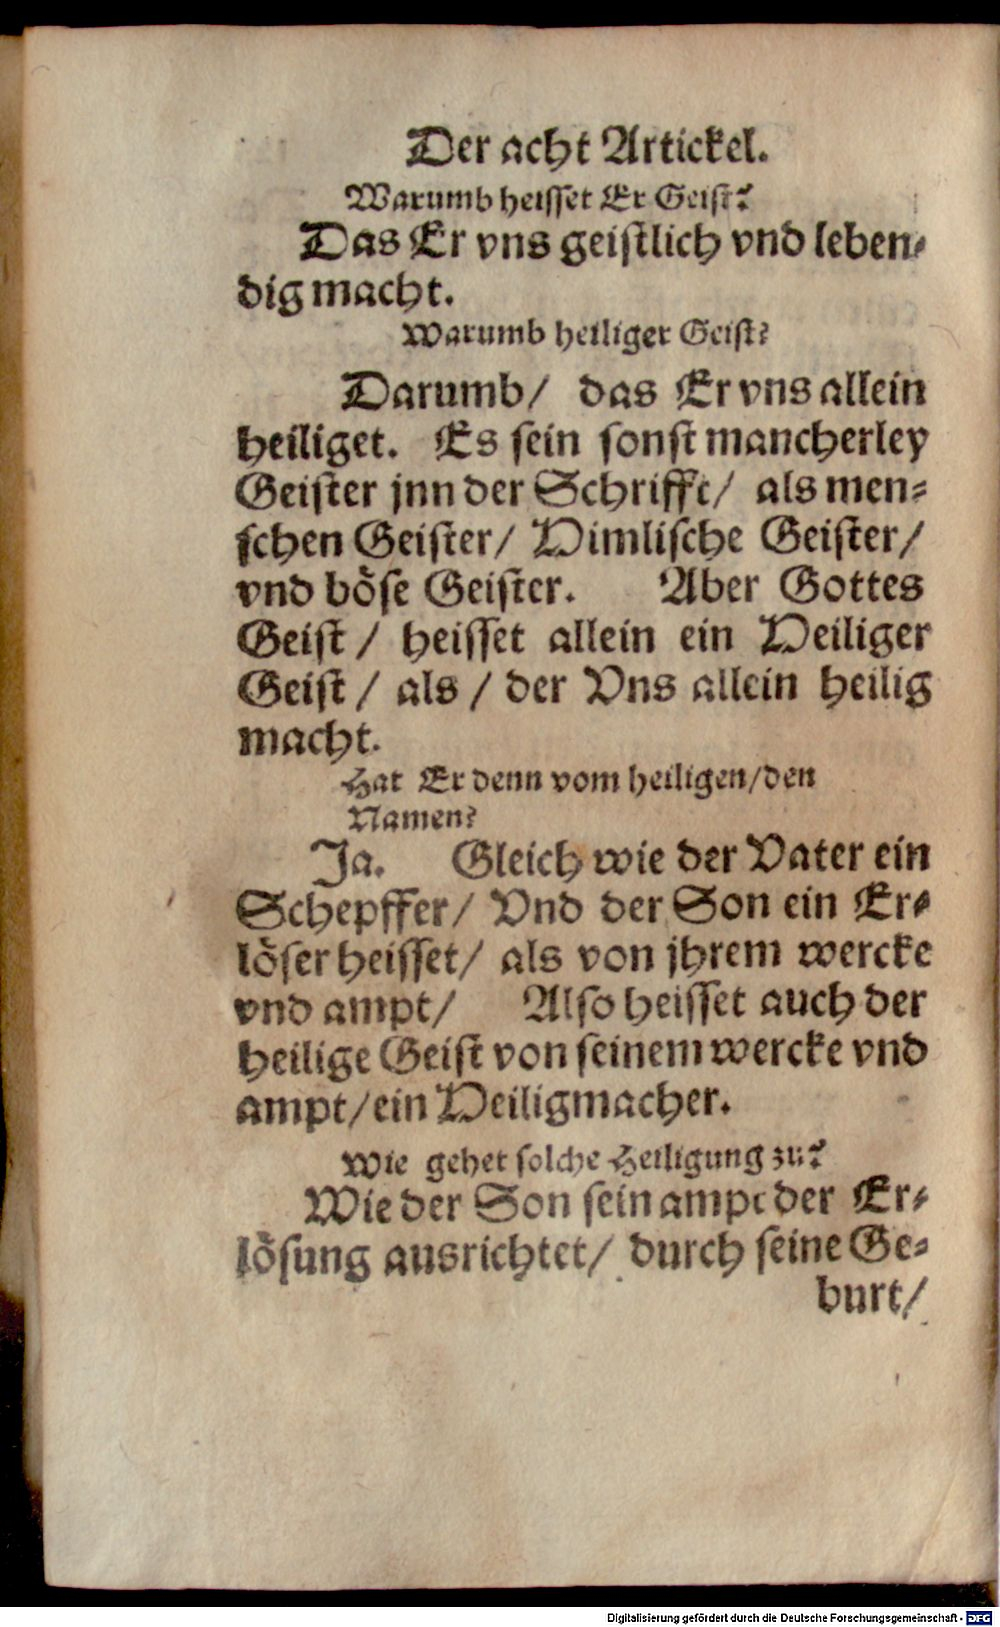 Der acht Artickel.
Warumb heisset Er Geist?
Das Er vns geistlich vnd leben-
dig macht.
Warumb heiliger Geist?
Darumb/ das Er vns allein
heiliget. Es sein sonst mancherley
Geister jnn der Schrifft/ als men-
schen Geister/ Himlische Geister/
vnd böse Geister. Aber Gottes
Geist / heisset allein ein Heiliger
Geist / als / der Vns allein heilig
macht.
Hat Er denn vom heiligen/den
Namen?
Ja. Gleich wie der Vater ein
Schepffer/ Vnd der Son ein Er-
löser heisset/ als von jhrem wercke
vnd ampt/ Also heisset auch der
heilige Geist von seinem wercke vnd
ampt/ein Heiligmacher.
Wie gehet solche Heiligung zu?
Wie der Son sein ampt der Er-
lösung ausrichtet/ durch seine Ge-
burt/
Digitalisierung gefördert durch die Deutsche Forschungsgemeinschaft - DFG